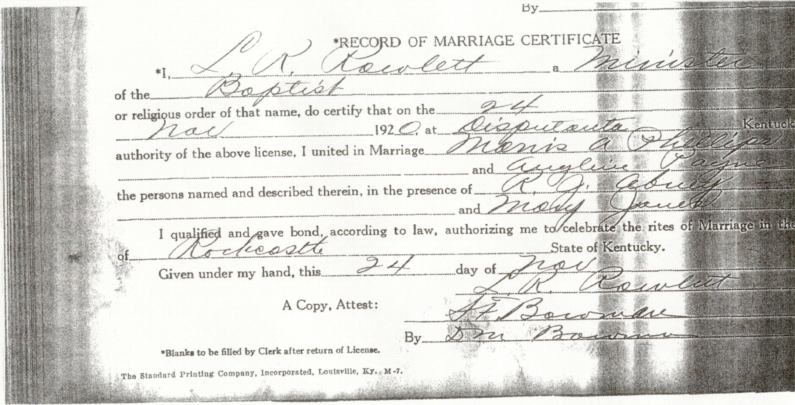 By
*RECORD OF MARRIAGE CERTIFICATE
*I, L. R. Rowlett a Minister
of the Baptist
or religious order of that name, do certify that on the 24
Nov 1920 at Disputanta Kentuck
authority of the above license, I united in Marriage Morris A Phillips
and Angline Payne
the persons named and described therein, in the presence of R. J. Abney
and Mary Jones
I qualified and gave bond, according to law, authorizing me to celebrate the rites of Marriage in the
of Rockcastle State of Kentucky.
Given under my hand, this 24 day of Nov
L. R. Rowlett
A Copy, Attest: S. F. Bowman
By D M Bowman
*Blanks to be filled by Clerk after return of License.
The Standard Printing Company, Incorporated, Louisville, Ky. M-7.